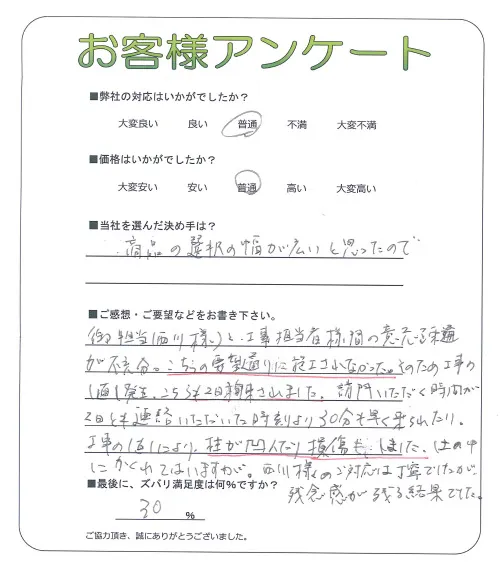 お客様アンケート
■弊社の対応はいかがでしたか？
大変良い 良い 普通 不満 大変不満
■価格はいかがでしたか？
大変安い 安い 普通 高い 大変高い
■当社を選んだ決め手は？
商品の選択の幅が広いと思ったので
■ご感想・ご要望などをお書き下さい。
御担当(西川様)と、工事担当者様間の意思疎通
が不充分。こちらの要望通りに施工されなかった。そのため工事の
直し発生、こちらも2日拘束されました。訪問いただく時間が
2日とも連絡いただいた時刻より30分も早く来られたり。
工事の直しにより、柱が凹んだり損傷もしました。土の中
にかくれてはいますが。西川様のご対応は丁寧でしたが、
残念感が残る結果でした。
■最後に、ズバリ満足度は何%ですか？
30 %
ご協力頂き、誠にありがとうございました。